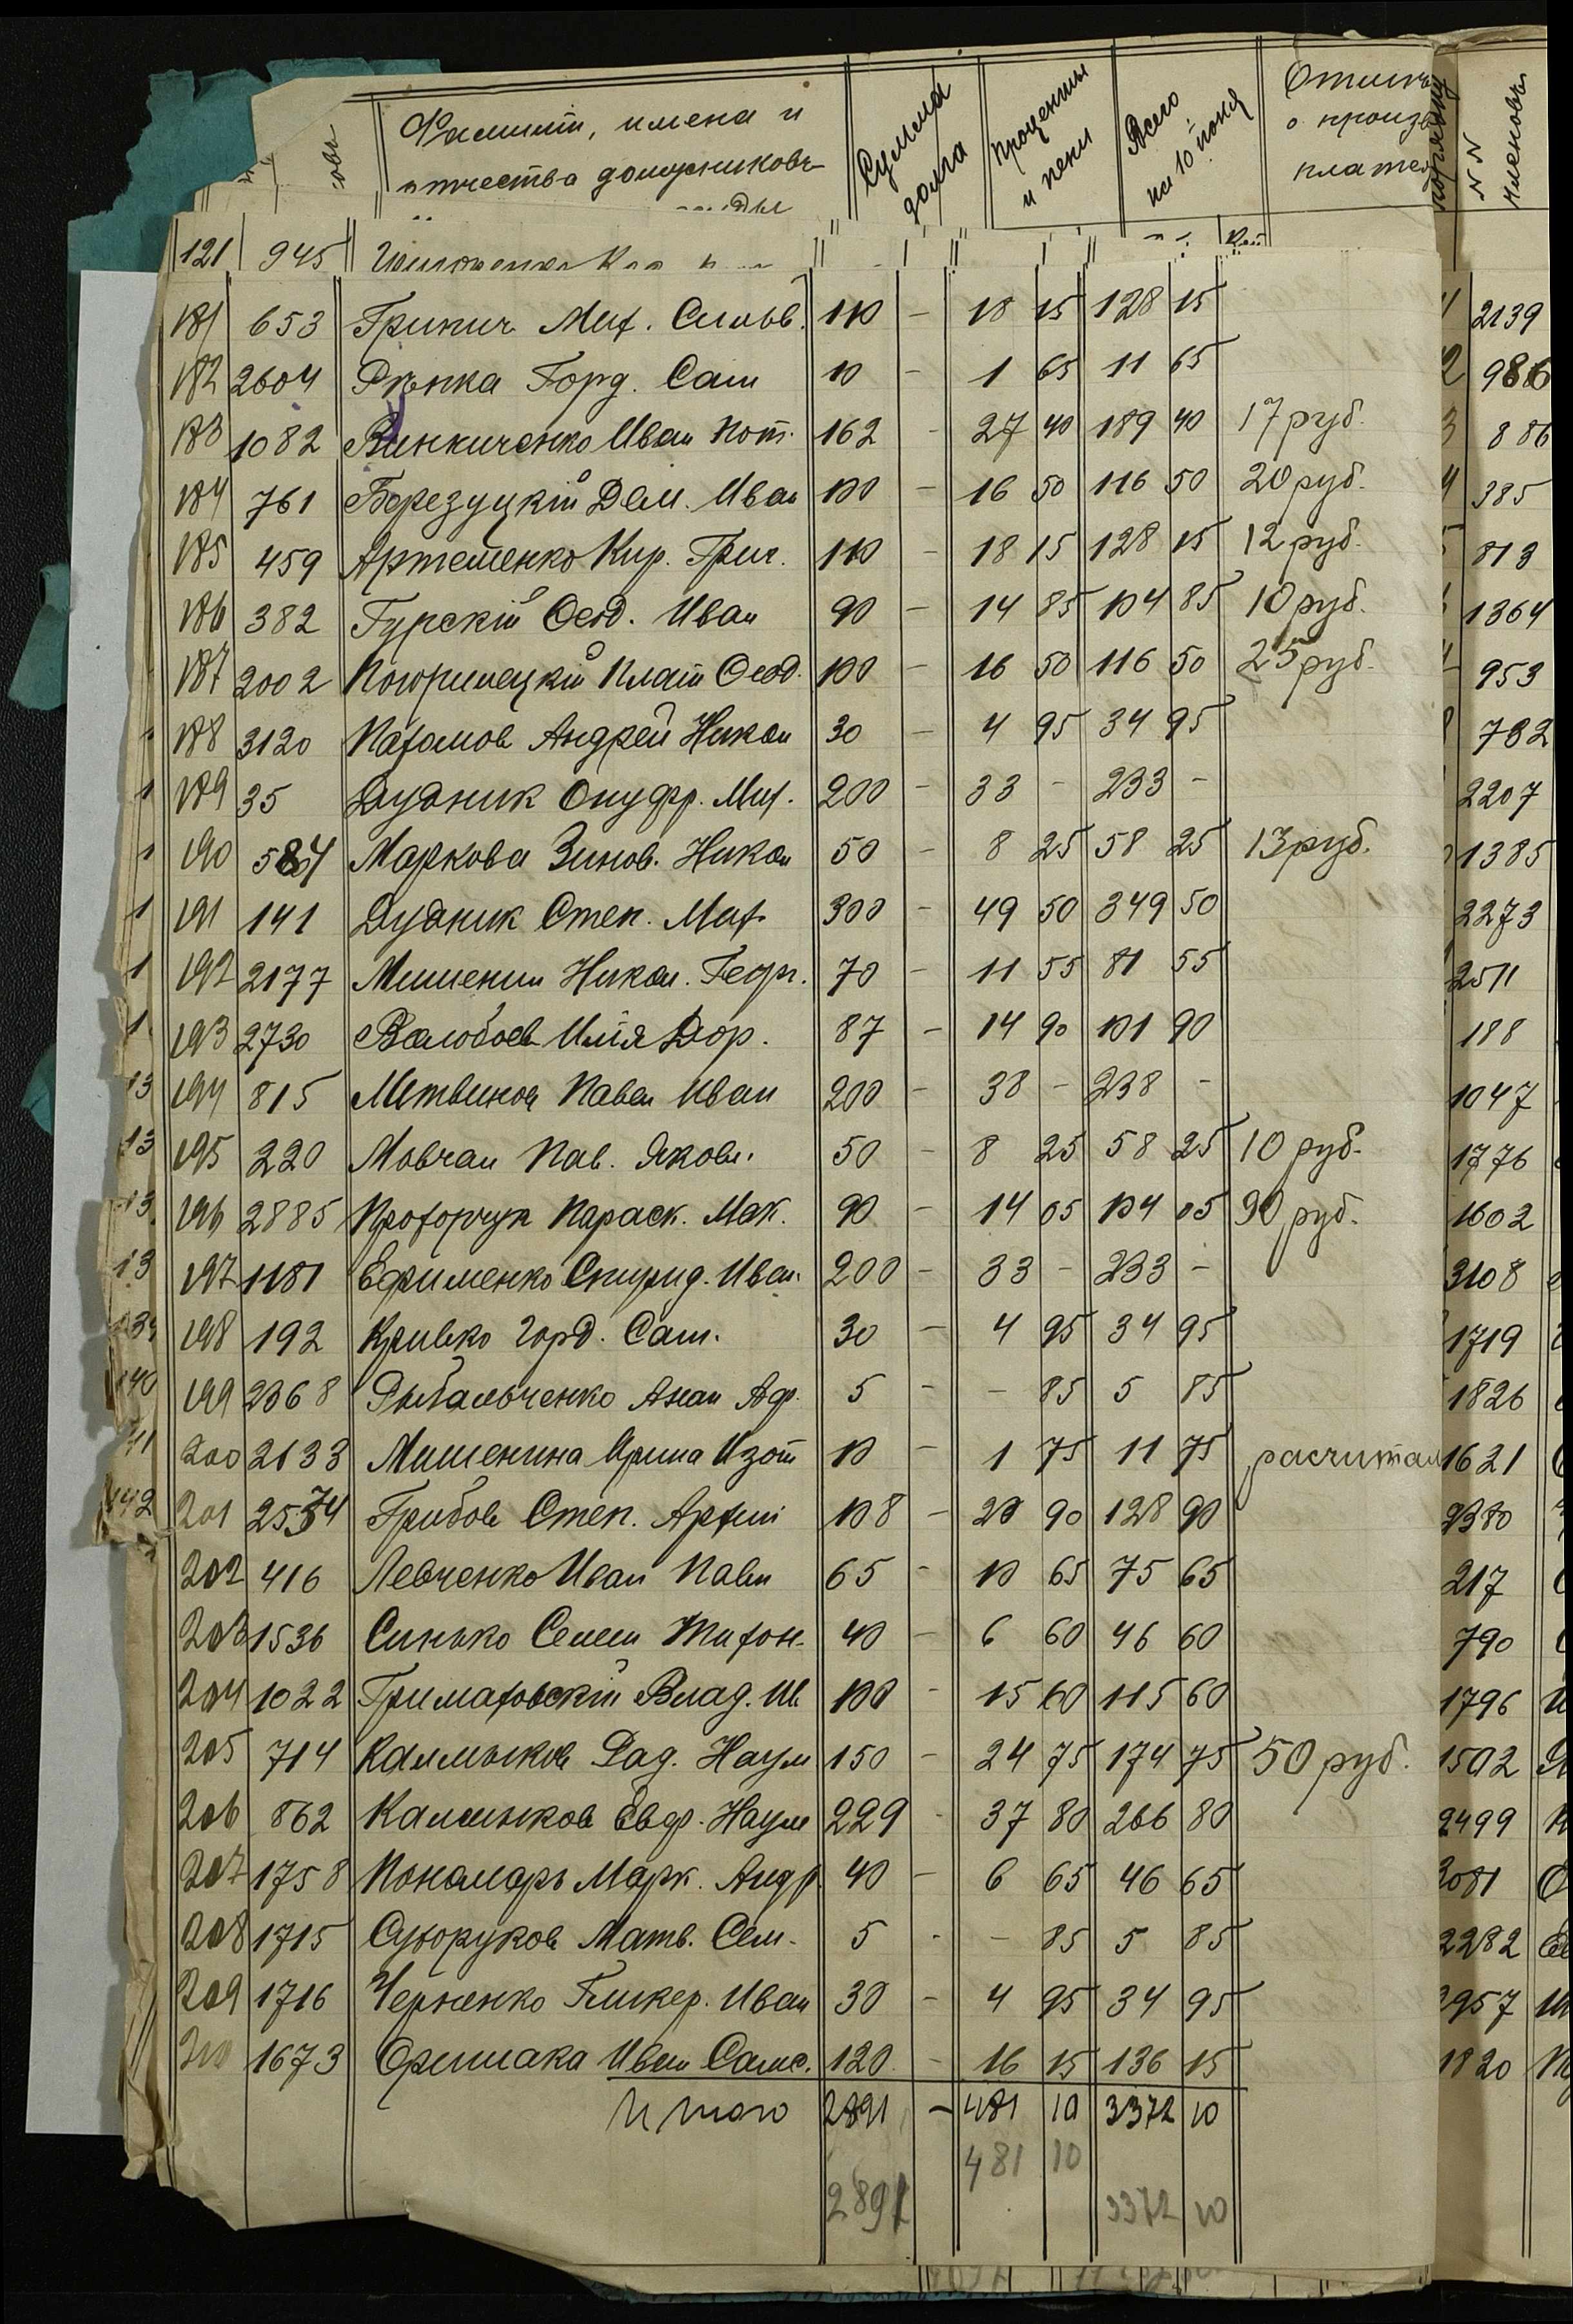 Фамилии, имена и
отчества должниковъ
Сумма
долга
Проценты
и пени
Всего
на 10 іюня
о произв
платеж
NN
членовъ
121 945
181 653 Грипич Мих. Сильв. 110 - 18 15 128 15
182 2604 Рѣпка Горд. Сам 10 - 1 65 11 65
183 1082 Винниченко Иван Пот. 162 - 27 40 189 40 17 руб.
184 761 Березуцкій Дем. Иван 100 - 16 50 116 50 20 руб.
185 459 Артеменко Кир. Григ. 110 - 18 15 128 15 12 руб.
186 382 Гурскій Феод. Иван 90 - 14 85 104 85 10 руб.
187 2002 Погорилецкій Плат Феод. 100 - 16 50 116 50 25 руб.
188 3120 Пахомов Андрей Никол 30 - 4 95 34 95
189 35 Дудник Онуфр. Мих. 200 - 33 - 233 -
190 584 Маркова Зинов. Никол 50 - 8 25 58 25 13 руб.
191 141 Дудник Степ. Мих. 300 - 49 50 349 50
192 2177 Мишенин Никол. Георг. 70 - 11 55 81 55
193 2730 Илія Дор. 87 - 14 90 101 90
194 815 Литвинов Павел Иван 200 - 38 - 238 -
195 220 Мовчан Пав. Яковл. 50 - 8 25 58 25 10 руб.
196 2885 Прохорчук Параск. Мак. 90 - 14 05 104 05 90 руб.
197 1181 Ефименко Спирид. Иван. 200 - 33 - 233 -
198 192 Кривко Горд. Сам. 30 - 4 95 34 95
199 2368 Рыбальченко Аф. 5 - - 85 5 85
200 2633 Мишенина Ирина Изот 10 - 1 75 11 75 расчитал
201 2574 Грибов Степ. Архип 108 - 20 90 128 90
202 416 Левченко Иван Павл 65 - 10 65 75 65
203 1536 Синько Семен Тихон. 40 - 6 60 46 60
204 1022 Грималовскій Влад. Ив 100 - 15 60 115 60
205 714 Калмыков Рад. Наум 150 - 24 75 174 75 50 руб.
206 862 Калмыков Евдр. Наум 229 - 37 80 266 80
207 1758 Пономарь Марк. Андр. 40 - 6 65 46 65
208 1715 Сухоруков Матв. Сем. 5 - - 85 5 85
209 1716 Черненко Иван 30 - 4 95 34 95
210 1673 Оришака Иван Самс. 120 - 16 15 136 15
Итого 2891 - 481 10 3372 10
481 10
2891
3372 10
2139
986
886
385
813
1364
953
782
2207
1385
2273
2511
188
1047
1776
1602
3108
1719
1826
1621
2380
217
790
1796
1502
2499
3081
2282
2957
1820